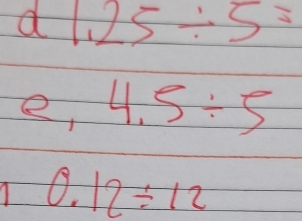 d 1.25 ÷ 5 =
e, 4.5 ÷ 5
0.12 ÷ 12